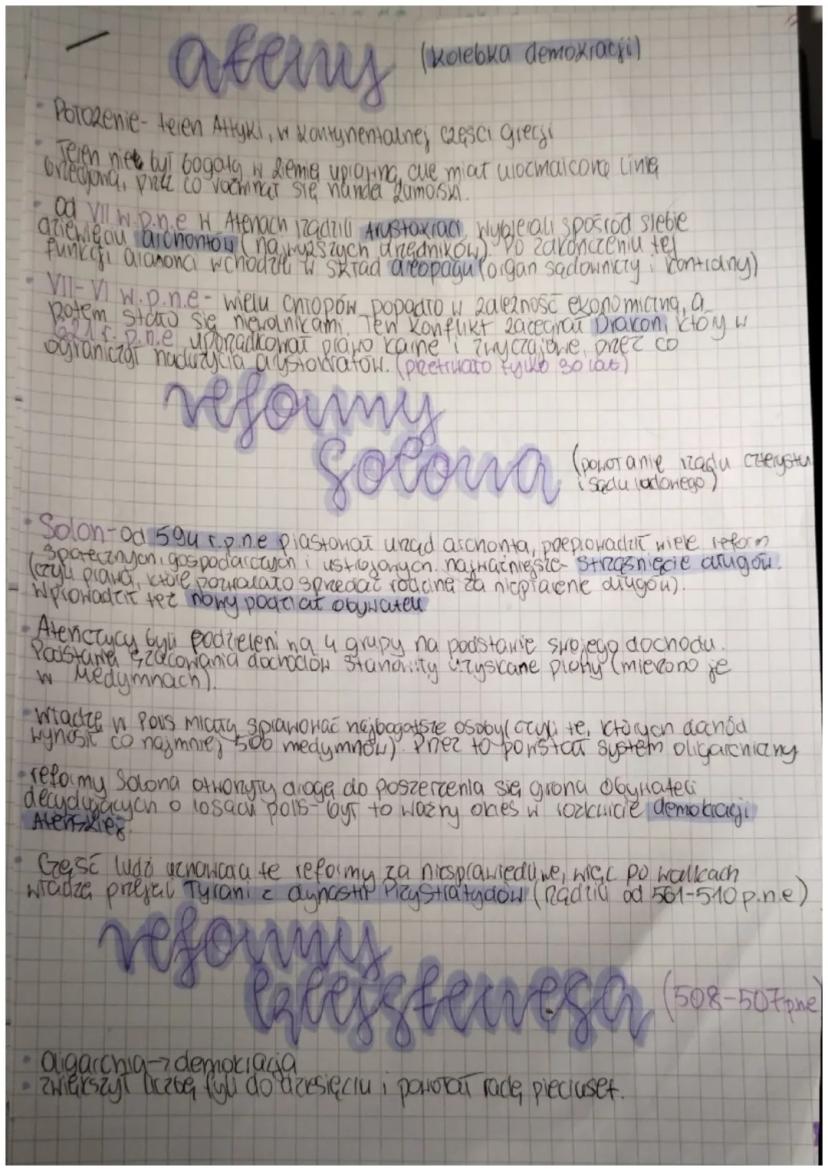 ateny (kolebka demokracji)
• Położenie- teren Attyki, w kontynentalnej części grecji
• Teren nie był bogaty w ziemię uprawną, ale miał urozmaiconą linię
brzegową, przez co rozwinął się handel zamorski.
• od VII w.p.n.e w Atenach rządzili Arystokraci, wybierali spośród siebie
dziewięciu archontów (najwyższych urzędników). Po zakończeniu tej
funkcji archonci wchodzili w skład areopagu (organ sądowniczy i kontrolny)
• VII-VI w.p.n.e - wielu chłopów popadło w zależność ekonomiczną, a
potem stało się niewolnikami. Ten konflikt Drakon, który w
621 r. p.n.e uporządkował prawo karne i zwyczajowe, przez co
ograniczył nadużycia arystokratów. (przetrwało tylko 30 lat)
reformy
Solona (powołanie rządu czterystu
i sądu ludowego)
• Solon-od 594 r.p.n.e piastował urząd archonta, przeprowadził wiele reform
społecznych, gospodarczych i ustrojowych. najważniejsze- strząśnięcie długów.
(czyli prawa, które pozwalało sprzedać rodzinę za niepłacenie długów).
- Wprowadził też nowy podział obywateli
• Ateńczycy byli podzieleni na 4 grupy na podstawie swojego dochodu.
Podstawę szacowania dochodów stanowiły uzyskane plony (mierzono je
w Medymnach).
• Władzę w Polis miały sprawować najbogatsze osoby (czyli te, których dochód
wynosił co najmniej 500 medymnów) Przez to powstał system oligarchiczny
• reformy Solona otworzyły drogę do poszerzenia się grona obywateli
decydujących o losach polis- był to ważny okres w rozkwicie demokracji
Ateńskiej.
• Część ludzi uznawała te reformy za niesprawiedliwe, więc po walkach
władzę przejęli Tyrani z dynastii Pizystratydów (rządzili od 561-510 p.n.e)
reformy
klejstenesa (508-507pne)
• oligarchia → demokracja
• zwiększył liczbę fyli do dziesięciu i powołał radę pięciuset.